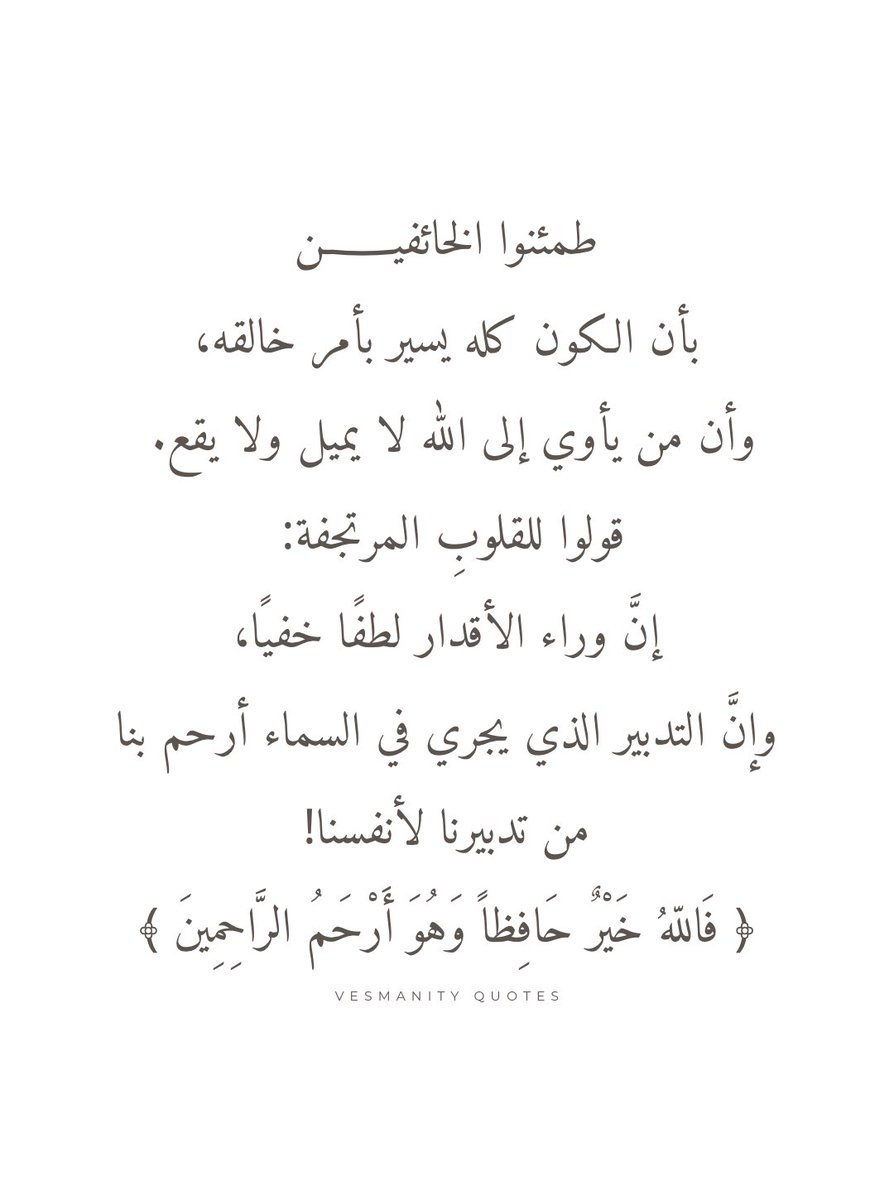 طمئنوا الخائفيـــــن
بأن الكون كله يسير بأمر خالقه،
وأن من يأوي إلى الله لا يميل ولا يقع.
قولوا للقلوبِ المرتجفة:
إنَّ وراء الأقدار لطفًا خفيًا،
وإنَّ التدبير الذي يجري في السماء أرحم بنا
من تدبيرنا لأنفسنا!
﴿ فَاللّهُ خَيْرٌ حَافِظاً وَهُوَ أَرْحَمُ الرَّاحِمِينَ ﴾
VESMANITY QUOTES